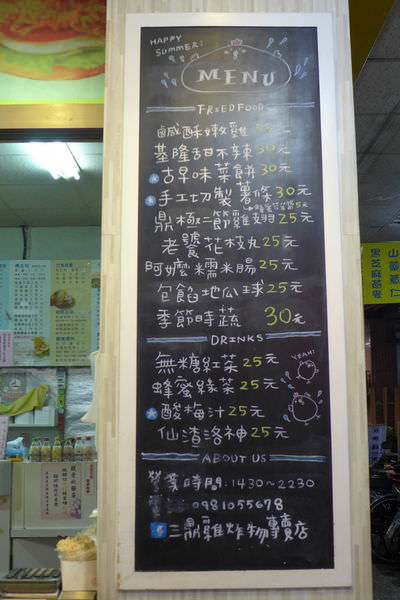 HAPPY
SUMMER!
MENU
FRIED FOOD
鹹酥嫩雞 元
基隆甜不辣 30元
古早味菜餅 30元
手工切製薯條 30元
鼎極二節雞翅 25元
老饕花枝丸 25元
阿嬤糯米腸 25元
包餡地瓜球 25元
季節時蔬 30元
DRINKS
無糖紅茶 25元
蜂蜜綠茶 25元
酸梅汁 25元
仙渣洛神 25元
YEAH!
ABOUT US
營業時間:1430~2230
0981055678
三鼎雞炸物專賣店
山藥薏仁
黑芝麻蕎麥